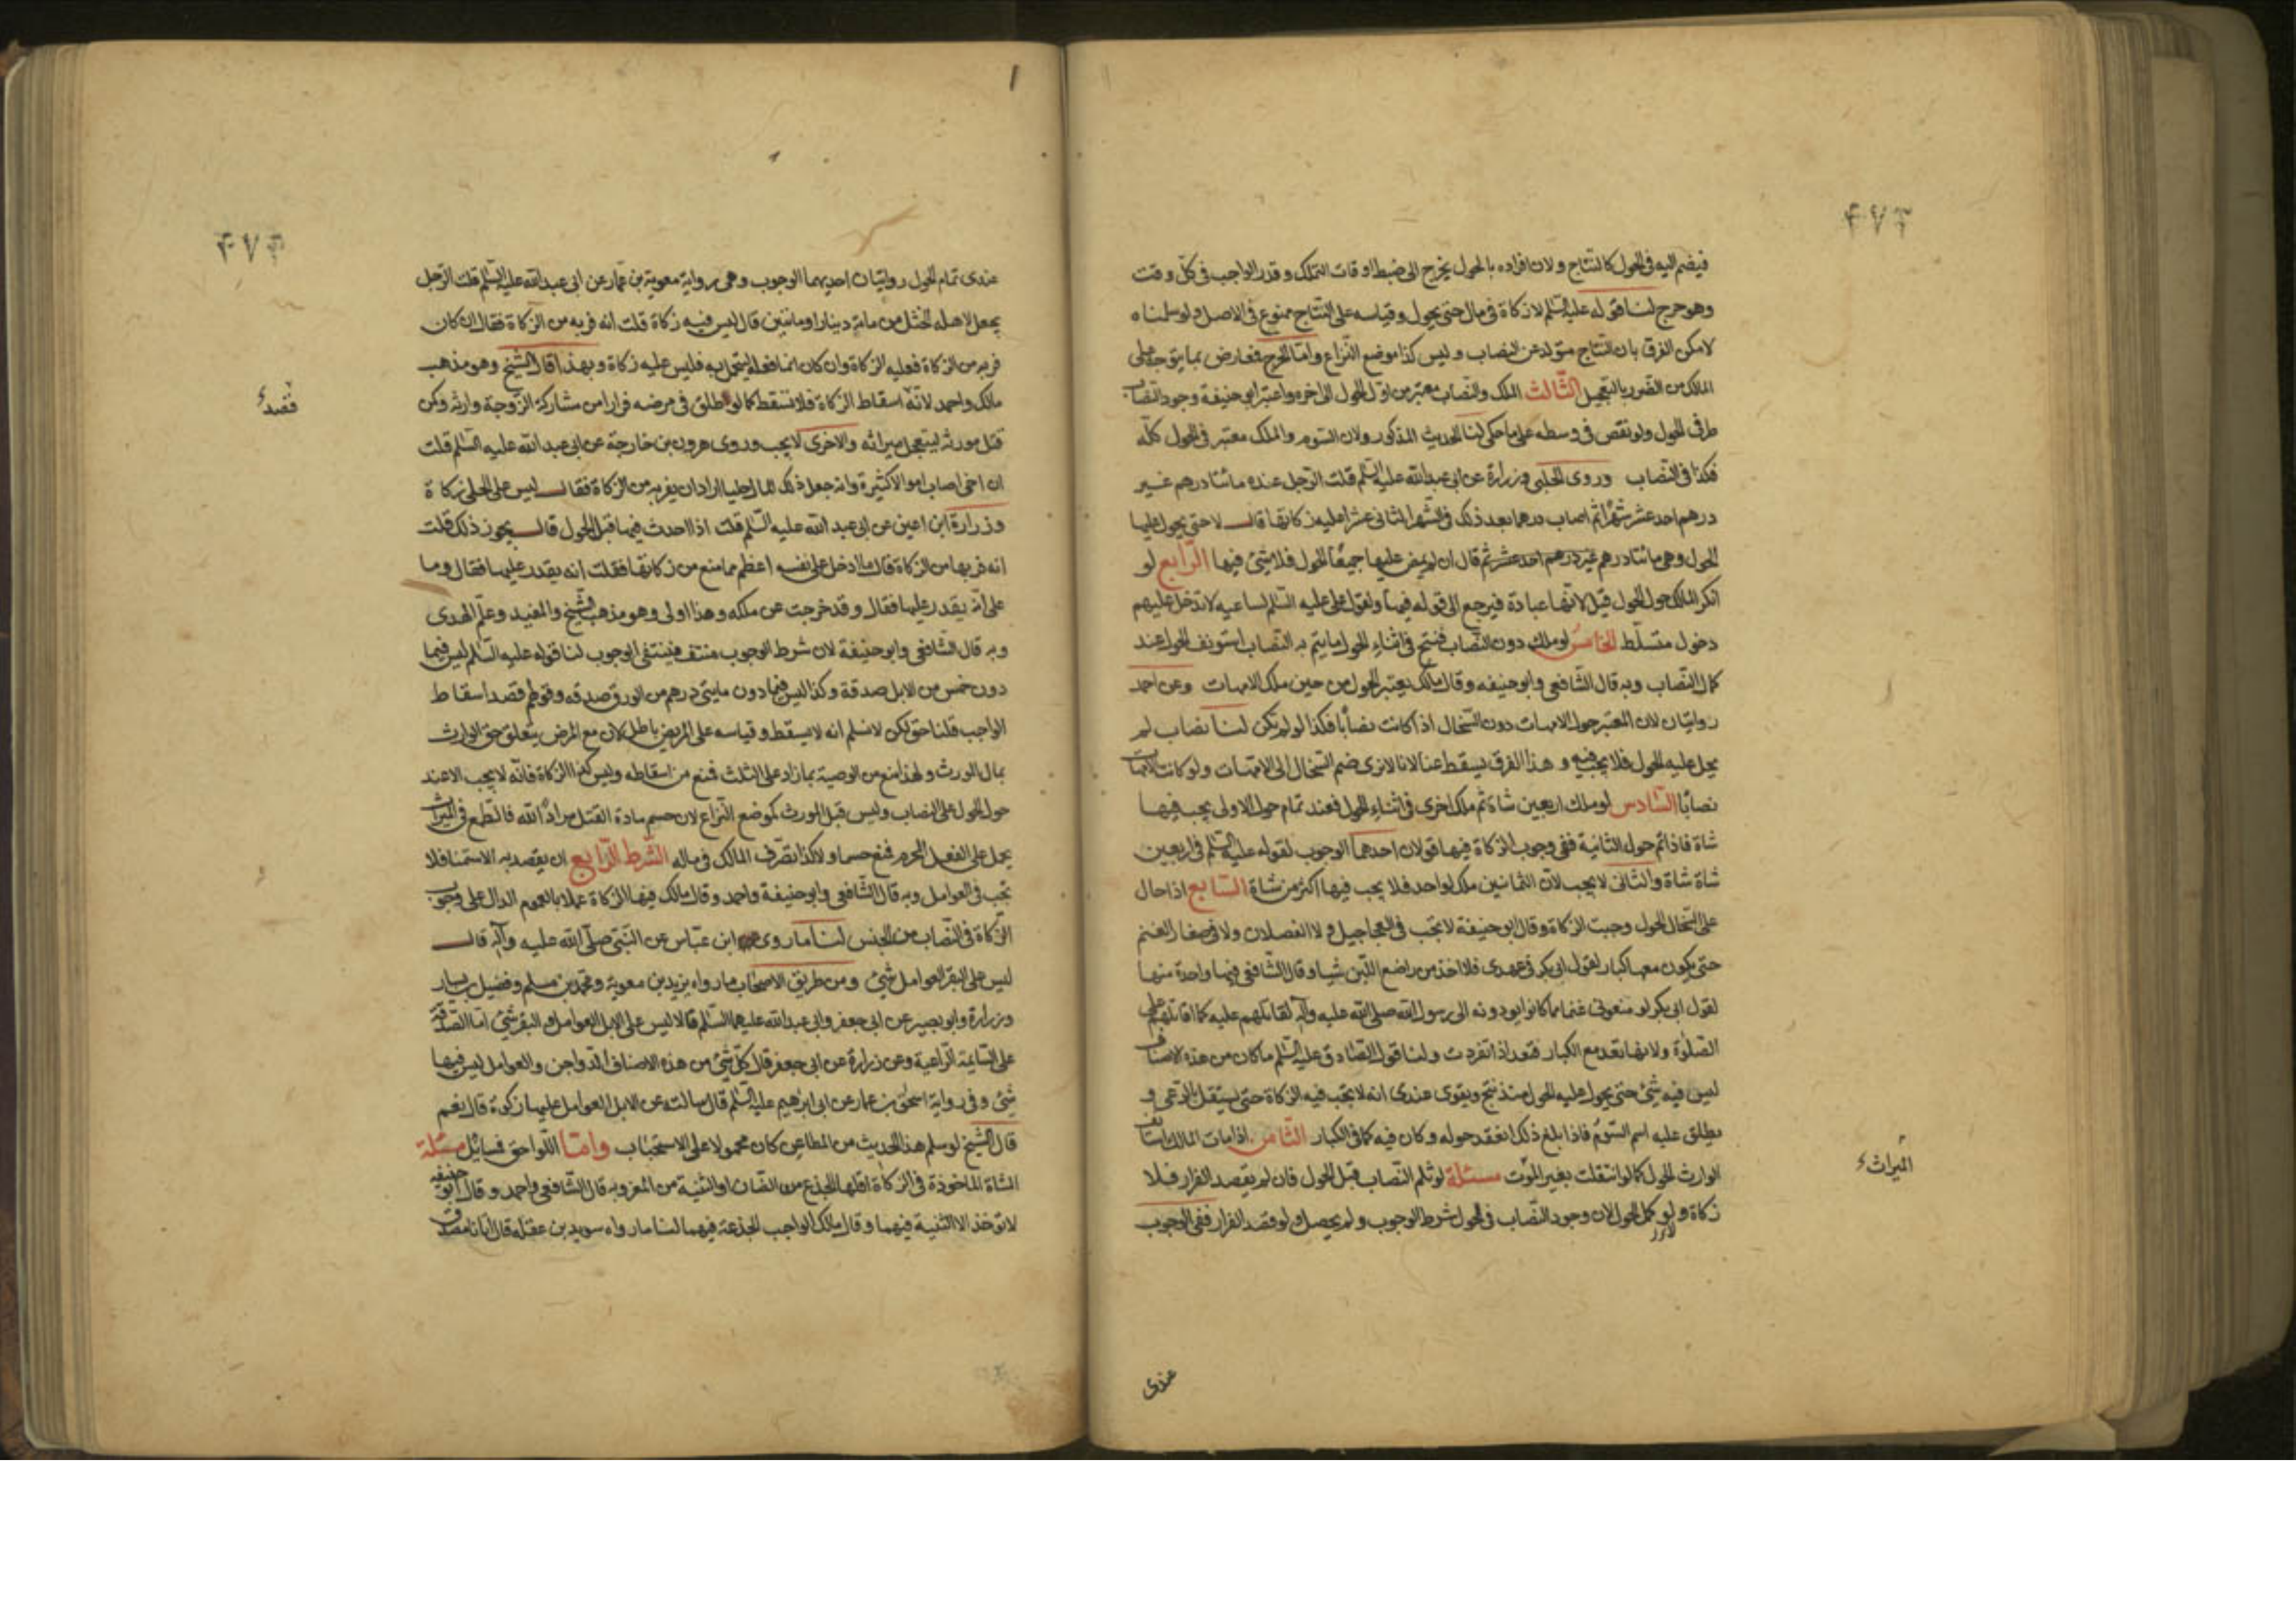 ۴۷۳
فيضم اليه فى الحول كالنتاج ولان افراده بالحول يخرج الى ضبط اوقات التملك وقدر الواجب فى كل وقت
وهو حرج لنا قوله عليه السلم لا زكاة فى مال حتى يحول وقياسه على النتاج ممنوع فى الاصل ولو سلمناه
لامكن الفرق بان النتاج متولد عن النصاب وليس كذا موضع النزاع واما الحرج فعارض بما يتوجه على
المالك من الضرر بالتعجيل الثالث الملك والنصاب معتبر من اول الحول الى اخره واعتبر ابو حنيفة وجود النصاب
طرفى الحول ولو نقص فى وسطه على ما حكى لنا الحديث المذكور ولان السوم والملك معتبر فى الحول كله
فكذا فى النصاب وروى الحلبى وزرارة عن ابى عبد الله عليه السلم قلت الرجل عنده مائتا درهم غير
درهم احد عشر شهرا ثم اصاب درهما بعد ذلك فى الشهر الثانى عشر اعليه زكاتها قال لا حتى يحول عليها
الحول وهى مائتا درهم غير درهم احد عشر ثم قال ان لم يمض عليها جميعا الحول فلا شئ فيها الرابع لو
انكر المالك حول الحول قبل لانها عبادة فيرجع الى قوله فيها ولقول على عليه السلم لساعيه لا تدخل عليهم
دخول متسلط الخامس لو ملك دون النصاب فنتج فى اثناء الحول ما يتم به النصاب استونف الحول عند
كمال النصاب وبه قال الشافعى وابو حنيفه وقال مالك يعتبر الحول من حين ملك الامهات وعن احمد
روايتان لان المعتبر حول الامهات دون السخال اذا كانت نصابا فكذا لو لم تكن لنا نصاب لم
يحل عليه الحول فلا يجب فيه و هذا الفرق يسقط عنا لانا لا نرى ضم السخال الى الامهات ولو كانت الامهات
نصابا السادس لو ملك اربعين شاة ثم ملك اخرى فى اثناء الحول فعند تمام حول الاولى يجب فيها
شاة فاذا تم حول الثانية ففى وجوب الزكاة فيها قولان احدهما الوجوب لقوله عليه السلم فى اربعين
شاة شاة والثانى لا يجب لان الثمانين ملك لواحد فلا يجب فيها اكثر من شاة السابع اذا حال
على السخال الحول وجبت الزكاة وقال ابو حنيفة لا تجب فى العجاجيل ولا الفصلان ولا فى صغار الغنم
حتى يكون معها كبار لقول ابى بكر فى عهدى فلا اخذ من راضع اللبن شيا وقال الشافعى فيها واحدة منها
لقول ابى بكر لو منعونى عنها مما كانوا يودونه الى رسول الله صلى الله عليه واله لقاتلهم عليه كما اقاتلهم على
الصلوة ولانها تعد مع الكبار فتعد اذا انفردت ولنا قول الصادق عليه السلم ما كان من هذه الاصناف
ليس فيه شئ حتى يحول عليه الحول منذ نتج ويقوى عندى انه لا تجب فيه الزكاة حتى يستقل بالرعى و
يطلق عليه اسم السوم فاذا بلغ ذلك انعقد حوله وكان فيه كما فى الكبار الثامن اذا مات المالك استانف
الوارث الحول كما لو انتقلت بغير الموت مسئلة لو ثلم النصاب قبل الحول فان لم يقصد الفرار فلا
زكاة ولو كمل الحول لان وجود النصاب فى الحول شرط الوجوب ولم يحصل ولو قصد الفرار ففى الوجوب
الميراث
عندى
عندى تمام الحول روايتان احديهما الوجوب وهى رواية معوية بن عمار عن ابى عبد الله عليه السلم قلت الرجل
يجعل لاهله الحلى من مائة دينار او مائتين قال ليس فيه زكاة قلت انه فر به من الزكاة فقال ان كان
فر به من الزكاة فعليه الزكاة وان كان انما فعله ليتجمل به فليس عليه زكاة وبهذا قال الشيخ وهو مذهب
مالك واحمد لانه اسقاط الزكاة فلا تسقط كما لو طلق فى مرضه فرارا من مشاركة الزوجة وارثه وكمن
قتل مورثه ليتعجل ميراثه والاخرى لا يجب وروى هرون بن خارجة عن ابى عبد الله عليه السلم قلت
ان اخى اصاب اموالا كثيرة وانه جعل ذلك المال حليا اراد ان يفر به من الزكاة فقال ليس على الحلى زكاة
وزرارة ابن اعين عن ابى عبد الله عليه السلم قلت اذا احدث فيها قبل الحول قال يجوز ذلك قلت
انه فر بها من الزكاة قال ما ادخل على نفسه اعظم مما منع من زكاتها فقلت انه يقدر عليها فقال وما
على انه يقدر عليها فقال وقد خرجت عن ملكه وهذا اولى وهو مذهب الشيخ والمفيد وعلم الهدى
وبه قال الشافعى وابو حنيفة لان شرط الوجوب منتف فينتفى الوجوب لنا قوله عليه السلم ليس فيما
دون خمس من الابل صدقة وكذا ليس فيما دون مايتى درهم من الورق صدقه وقولهم قصد اسقاط
الواجب قلنا حق لكن لا نسلم انه لا يسقط وقياسه على المريض باطل لان مع المرض يتعلق حق الوارث
بمال المورث ولهذا منع من الوصية بما زاد على الثلث فمنع من اسقاطه وليس كذا الزكاة فانه لا يجب الا عند
حول الحول على النصاب وليس قبل المورث كموضع النزاع لان حسم مادة القتل مراد الله فالطمع فى الميراث
يحمل على الفعل المحرم فمنع حسما ولا كذا تصرف المالك فى ماله الشرط الرابع ان يقصد به الاستمنا فلا
تجب فى العوامل وبه قال الشافعى وابو حنيفة واحمد وقال مالك فيها الزكاة عملا بالعموم الدال على وجوب
الزكاة فى النصاب من الجنس لنا ما روى ابن عباس عن النبى صلى الله عليه واله قال
ليس على البقر العوامل شئ ومن طريق الاصحاب ما رواه يزيد بن معوية ومحمد بن مسلم وفضيل بن يسار
وزرارة وابو بصير عن ابى جعفر وابى عبد الله عليهما السلم قالا ليس على الابل العوامل ولا البقر شئ انما الصدقة
على السايمة الراعية وعن زرارة عن ابى جعفر قال كل شئ من هذه الاصناف الدواجن والعوامل ليس فيها
شئ وفى رواية اسحق بن عمار عن ابى ابرهيم عليه السلم قال سالته عن الابل العوامل عليها زكوة قال نعم
قال الشيخ لو سلم هذا الحديث من المطاعن كان محمولا على الاستحباب واما اللواحق فمسائل مسئلة
الشاة الماخوذة فى الزكاة اقلها الجذع من الضان او الثنية من المعز وبه قال الشافعى واحمد وقال ابو حنيفه
لا توخذ الا الثنية فيهما وقال مالك الواجب الجذعة فيهما لنا ما رواه سويد بن عفله قال اتانا مصدق
قصد